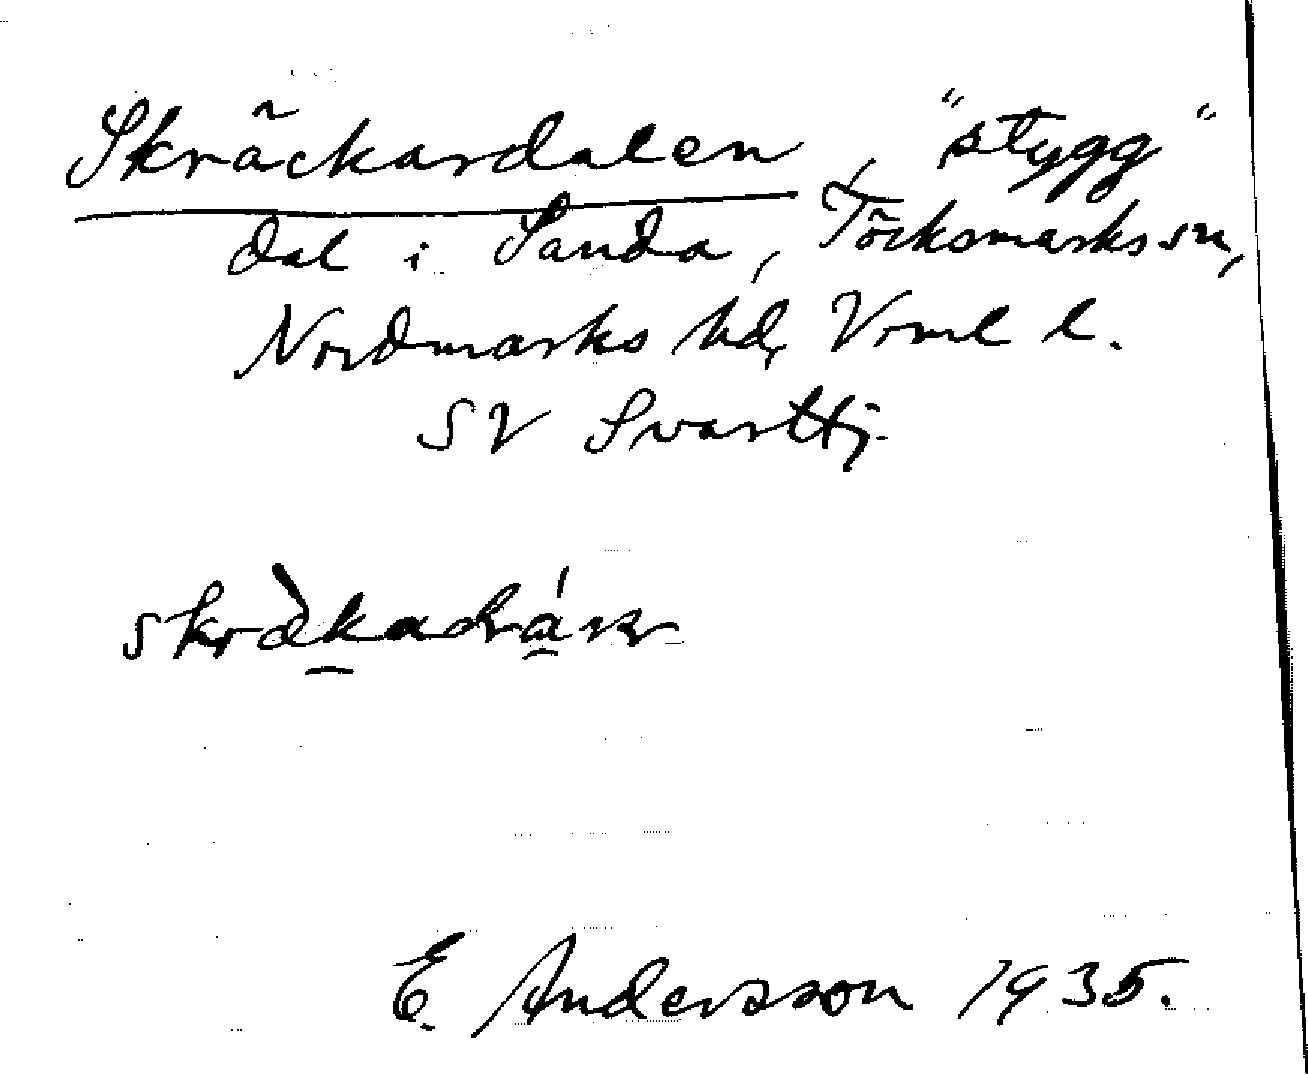 Skräckardalen, "stygg"
dal i Sanda, Töcksmarks sn,
Nordmarks hd, Vrml l.
SV Svarttj.
E. Andersson 1935.